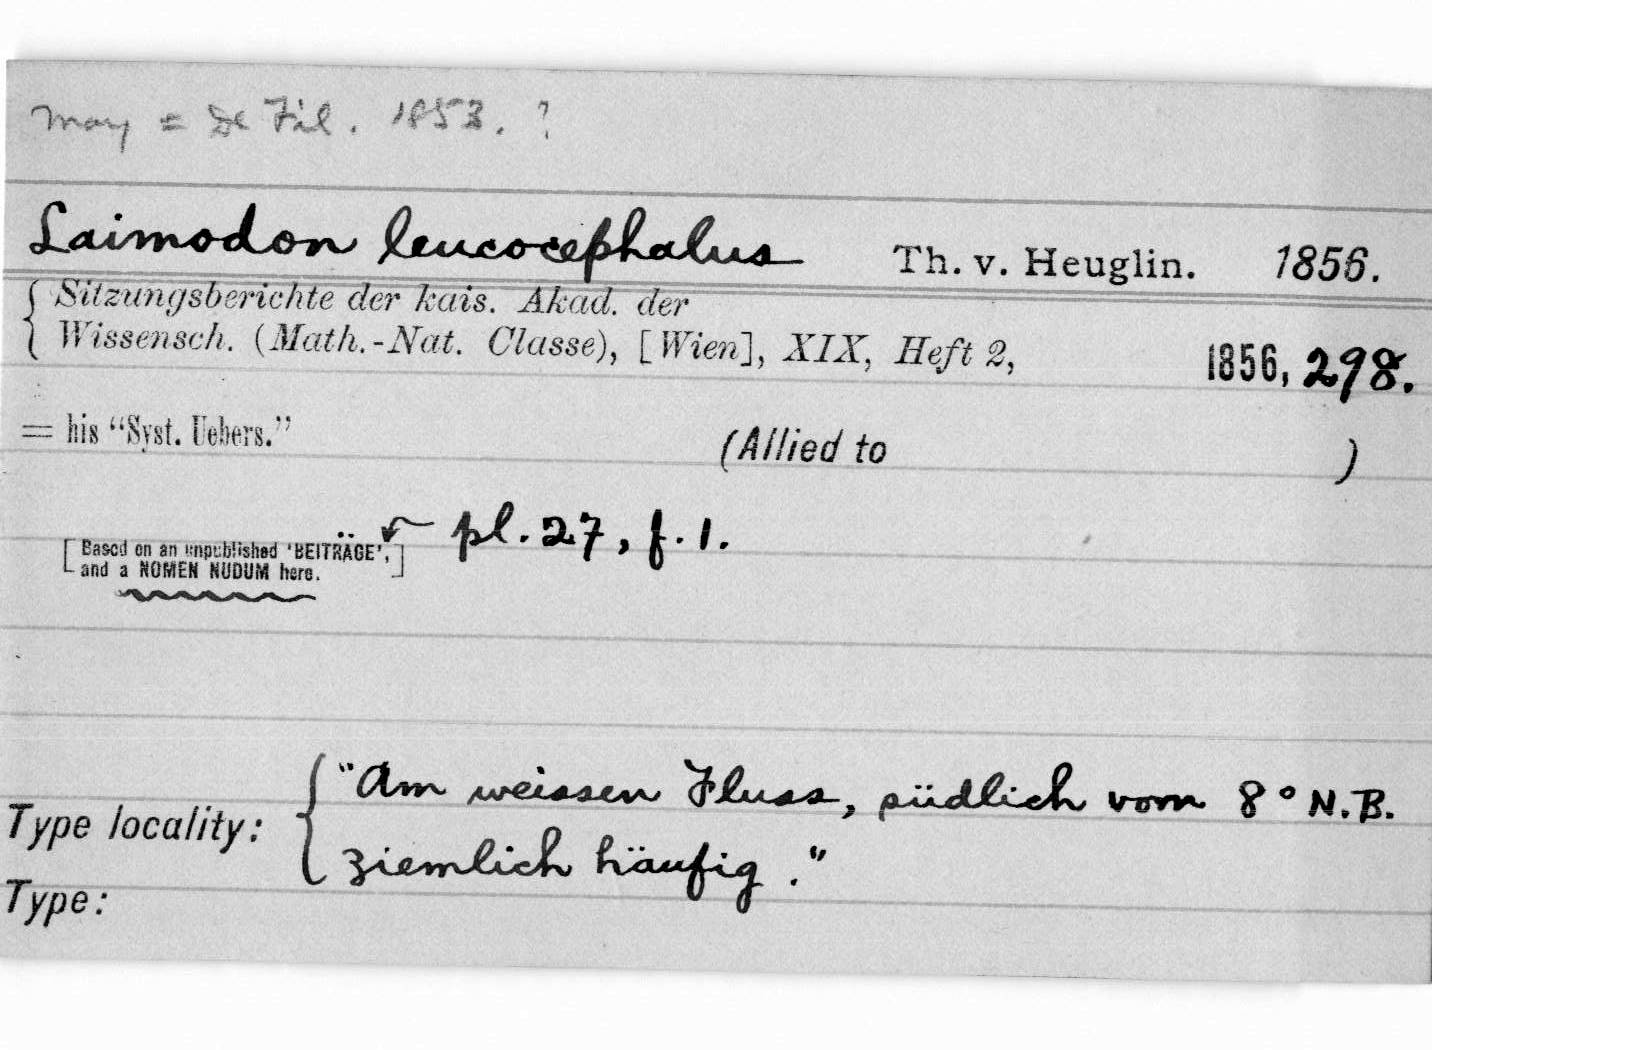 may = De Fil. 1853. ?
Laimodon leucocephalus Th. v. Heuglin. 1856.
Sitzungsberichte der kais. Akad. der
Wissensch. (Math.-Nat. Classe), [Wien], XIX, Heft 2, 1856, 298.
= his “Syst. Uebers.” (Allied to )
pl. 27, f. 1.
[Based on an unpublished ‘BEITRÄGE’,
and a NOMEN NUDUM here.]
"Am weissen Fluss, südlich vom 8° N.B.
Type locality:
ziemlich häufig."
Type: